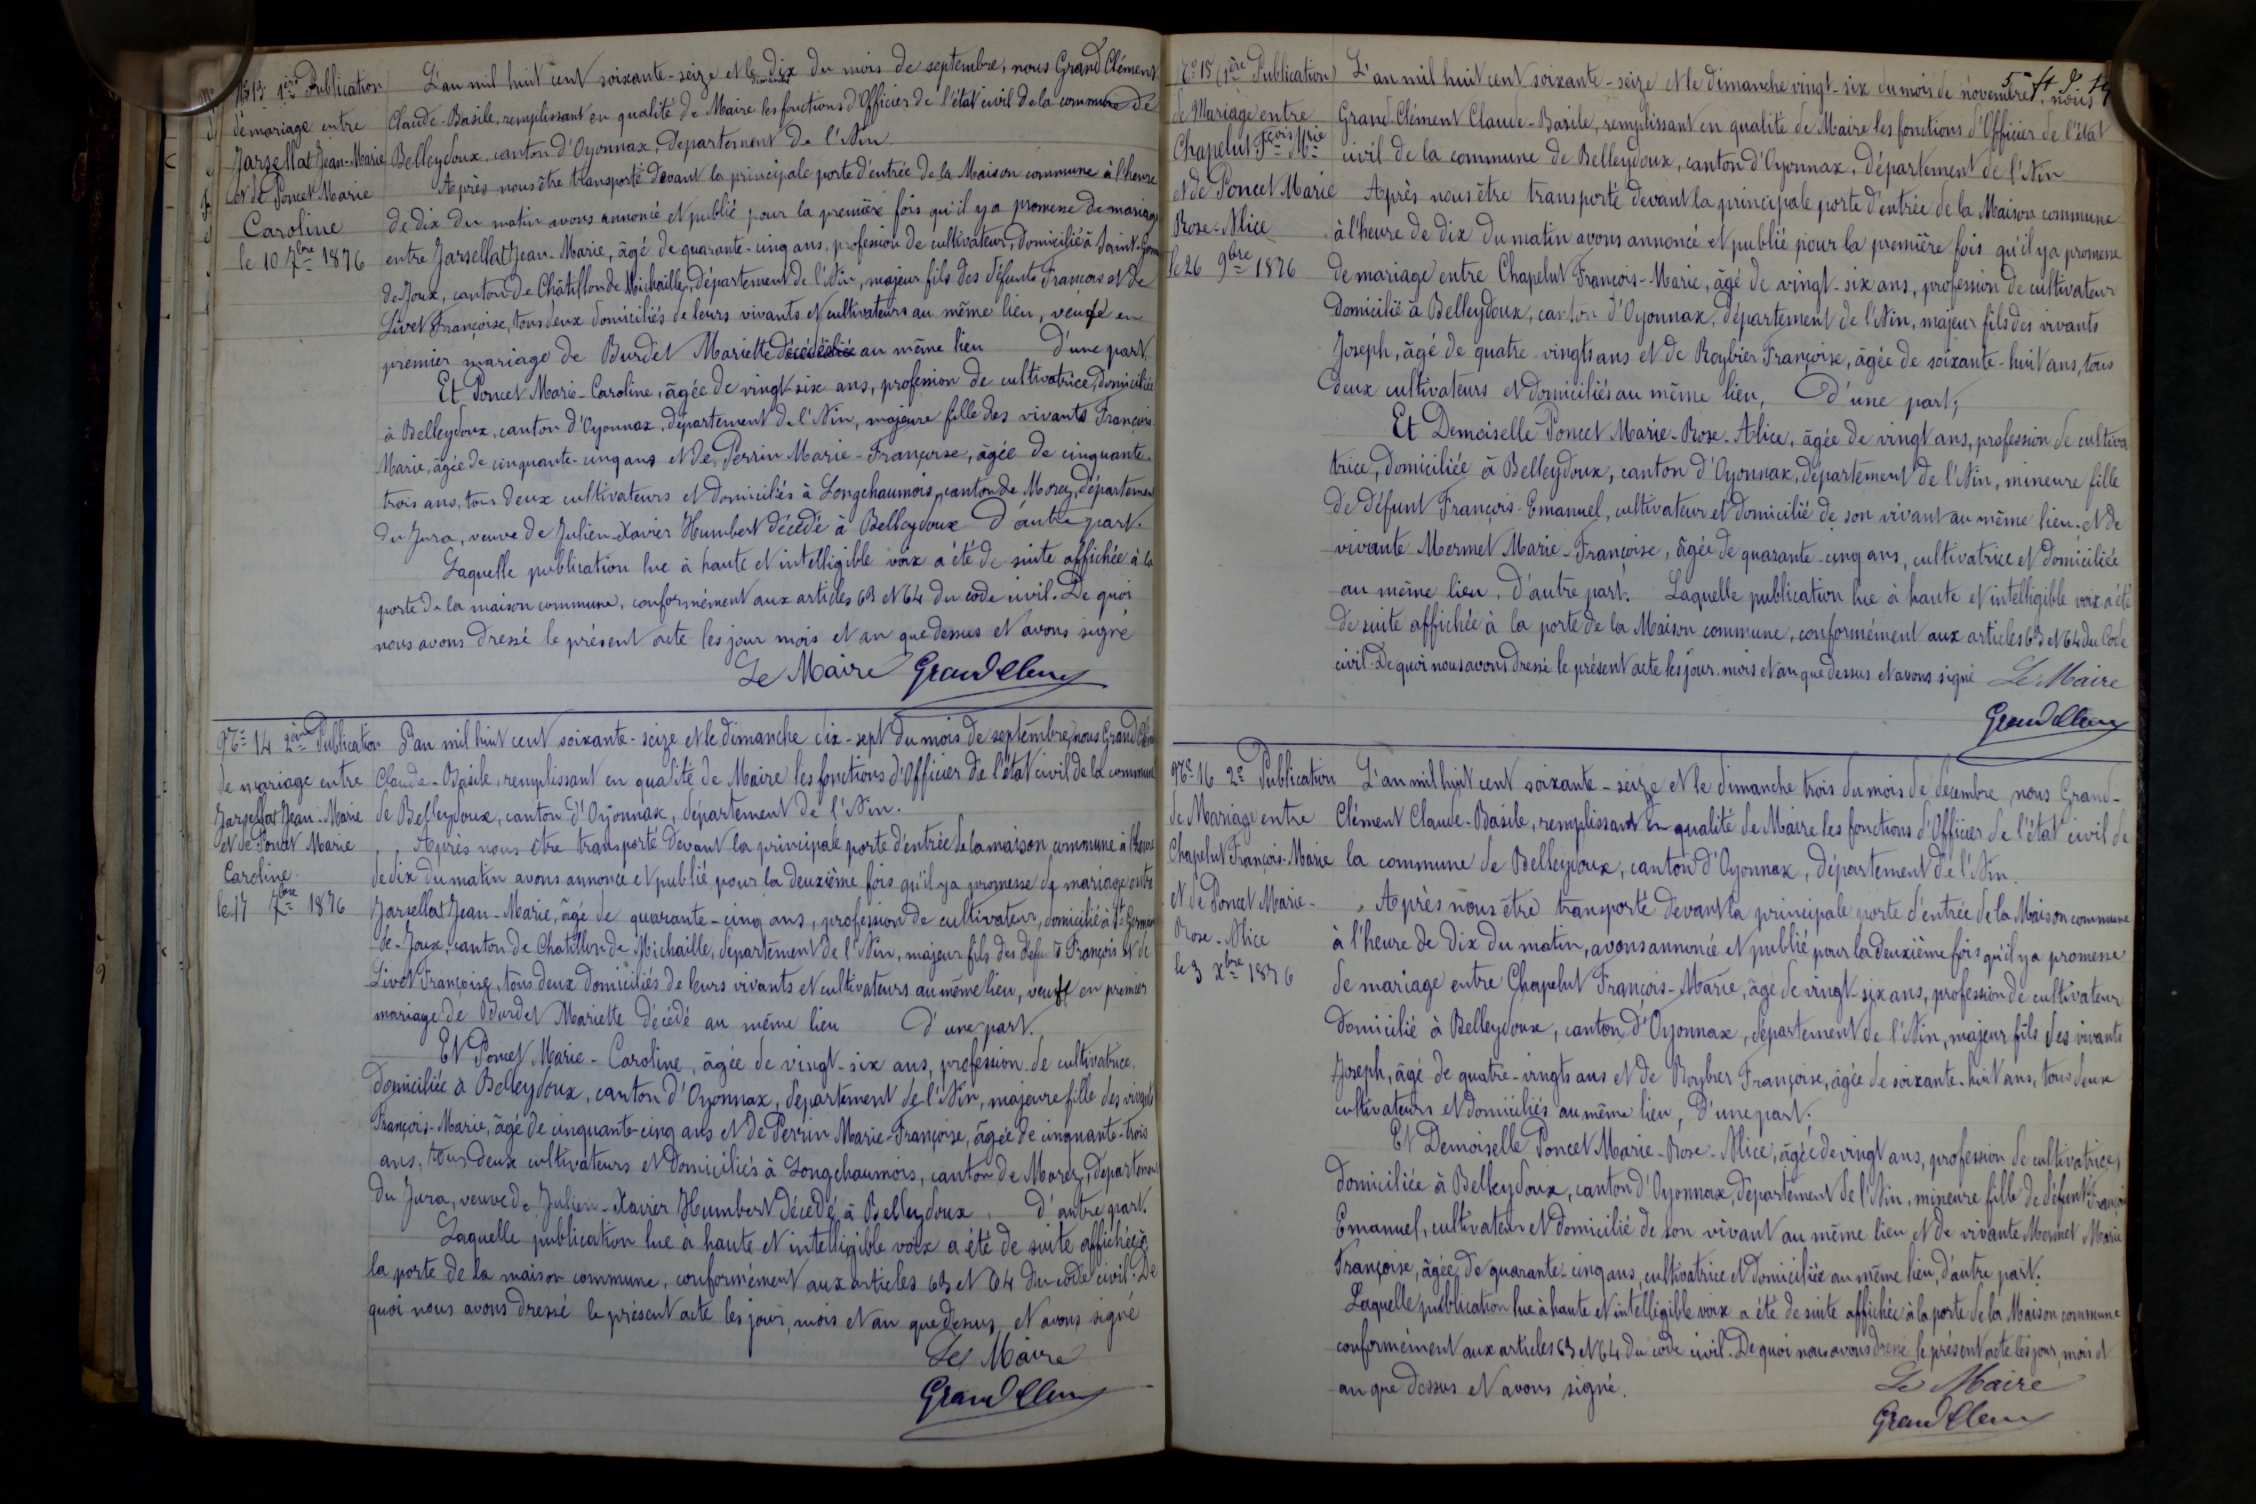 No 13 1ère Publication
de mariage entre
Jarsellat Jean-Marie
et de Poncet Marie
Caroline
le 10 7bre 1876
L'an mil huit cent soixante-seize et le dimanche dix du mois de septembre, nous Grand Clément
Claude-Basile, remplissant en qualité de Maire les fonctions d'Officier de l'état civil de la commune de
Belleydoux, canton d'Oyonnax, Département de l'Ain
Après nous être transporté devant la principale porte d'entrée de la Maison commune à l'heure
de dix du matin avons annoncé et publié pour la première fois qu'il y a promesse de mariage
entre Jarsellat Jean-Marie, âgé de quarante-cinq ans, profession de cultivateur, domicilié à Saint-Germ
de Joux, canton de Châtillon de Michaille, département de l'Ain, majeur fils des défunts François et de
Livet Françoise, tous deux domiciliés de leurs vivants et cultivateurs au même lieu, veuf en
premier mariage de Burdet Mariette décédée au même lieu d'une part.
Et Poncet Marie-Caroline, âgée de vingt-six ans, profession de cultivatrice, domiciliée
à Belleydoux, canton d'Oyonnax, département de l'Ain, majeure fille des vivants François
Marie, agée de cinquante-cinq ans et de Perrin Marie-Françoise, âgée de cinquante-
trois ans, tous deux cultivateurs et domiciliés à Longchaumois, canton de Morez, département
du Jura, veuve de Julien-Xavier Humbert décédé à Belleydoux d'autre part.
Laquelle publication lue à haute et intelligible voix a été de suite affichée à la
porte de la maison commune, conformément aux articles 63 et 64 du code civil. De quoi
nous avons dressé le présent acte les jour mois et an que dessus et avons signé
Le Maire Grand Clem
No 14 2ème Publication
de mariage entre
Jarsellat Jean-Marie
et de Poncet Marie
Caroline
le 17 7bre 1876
L'an mil huit cent soixante-seize et le dimanche dix-sept du mois de septembre, nous Grand Clém
Claude-Basile, remplissant en qualité de Maire les fonctions d'Officier de l'état civil de la commune
de Belleydoux, canton d'Oyonnax, département de l'Ain.
Après nous être transporté devant la principale porte d'entrée de la maison commune à l'heure
de dix du matin avons annoncé et publié pour la deuxième fois qu'il y a promesse de mariage entre
Jarsellat Jean-Marie, âgé de quarante-cinq ans, profession de cultivateur, domicilié à St Germain
de-Joux, canton de Chatillon de Michaille, département de l'Ain, majeur fils des défunts François et de
Livet Françoise, tous deux domiciliés de leurs vivants et cultivateurs au même lieu, veuf en premier
mariage de Burdet Mariette décédé au même lieu d'une part.
Et Poncet Marie-Caroline, âgée de vingt-six ans, profession de cultivatrice,
domiciliée à Belleydoux, canton d'Oyonnax, département de l'Ain, majeure fille des vivants
François-Marie, âgé de cinquante-cinq ans et de Perrin Marie-Françoise, âgée de cinquante-trois
ans, tous deux cultivateurs et domiciliés à Longchaumois, canton de Morez, département
du Jura, veuve de Julien-Xavier Humbert décédé, à Belleydoux. d'autre part.
Laquelle publication lue a haute et intelligible voix a été de suite affichée à
la porte de la maison commune, conformément aux articles 63 et 64 du code civil. De
quoi nous avons dressé le présent acte les jour, mois et an que dessus, et avons signé
Le Maire
Grand Clem
No 15 (1ère Publication)
de Mariage entre
Chapelut Fçois Mrie
et de Poncet Marie
Rose-Alice
le 26 9bre 1876
L'an mil huit cent soixante-seize et le dimanche vingt-six du mois de novembre, nous
Grand-Clément Claude-Basile, remplissant en qualité de Maire les fonctions d'Officier de l'état
civil de la commune de Belleydoux, canton d'Oyonnax, département de l'Ain
Après nous être transporté devant la principale porte d'entrée de la Maison commune
à l'heure de dix du matin avons annoncé et publié pour la première fois qu'il y a promesse
de mariage entre Chapelut François-Marie, âgé de vingt-six ans, profession de cultivateur
domicilié à Belleydoux, canton d'Oyonnax, département de l'Ain, majeur fils des vivants
Joseph, âgé de quatre-vingts ans et de Roybier Françoise, âgée de soixante-huit ans, tous
deux cultivateurs et domiciliés au même lieu, d'une part;
Et Demoiselle Poncet Marie-Rose-Alice, âgée de vingt ans, profession de cultiva
trice, domiciliée à Belleydoux, canton d'Oyonnax, département de l'Ain, mineure fille
de défunt François-Emanuel, cultivateur et domicilié de son vivant au même lieu et de
vivante Mermet Marie-Françoise, âgée de quarante-cinq ans, cultivatrice et domiciliée
au même lieu, d'autre part. Laquelle publication lue à haute et intelligible voix a été
de suite affichée à la porte de la Maison commune, conformément aux articles 63 et 64 du Code
civil. De quoi nous avons dressé le présent acte les jour, mois et an que dessus et avons signé Le Maire
Grand Clem
No 16 2e Publication
de Mariage entre
Chapelut François-Marie
et de Poncet Marie-
Rose-Alice
le 3 Xbre 1876
L'an mil huit cent soixante-seize et le dimanche trois du mois de décembre, nous Grand-
Clément Claude-Basile, remplissant en qualité de Maire les fonctions d'Officier de l'état civil de
la commune de Belleydoux, canton d'Oyonnax, département de l'Ain.
Après nous être transporté devant la principale porte d'entrée de la Maison commune
à l'heure de dix du matin, avons annoncé et publié pour la deuxième fois qu'il y a promesse
de mariage entre Chapelut François-Marie, âgé de vingt-six ans, profession de cultivateur
domicilié à Belleydoux, canton d'Oyonnax, département de l'Ain, majeur fils des vivants
Joseph, âgé de quatre-vingts ans et de Roybier Françoise, âgée de soixante-huit ans, tous deux
cultivateurs et domiciliés au même lieu, d'une part;
Et Demoiselle Poncet Marie-Rose-Alice, âgée de vingt ans, profession de cultivatrice,
domiciliée à Belleydoux, canton d'Oyonnax, département de l'Ain, mineure fille de défunt François
Emanuel, cultivateur et domicilié de son vivant au même lieu et de vivante Mermet Marie
Françoise, âgée de quarante-cinq ans, cultivatrice et domiciliée au même lieu, d'autre part.
Laquelle publication lue à haute et intelligible voix a été de suite affichée à la porte de la Maison commune
conformément aux articles 63 et 64 du code civil. De quoi nous avons dressé le présent acte les jour, mois et
an que dessus et avons signé.
Le Maire
Grand Clem